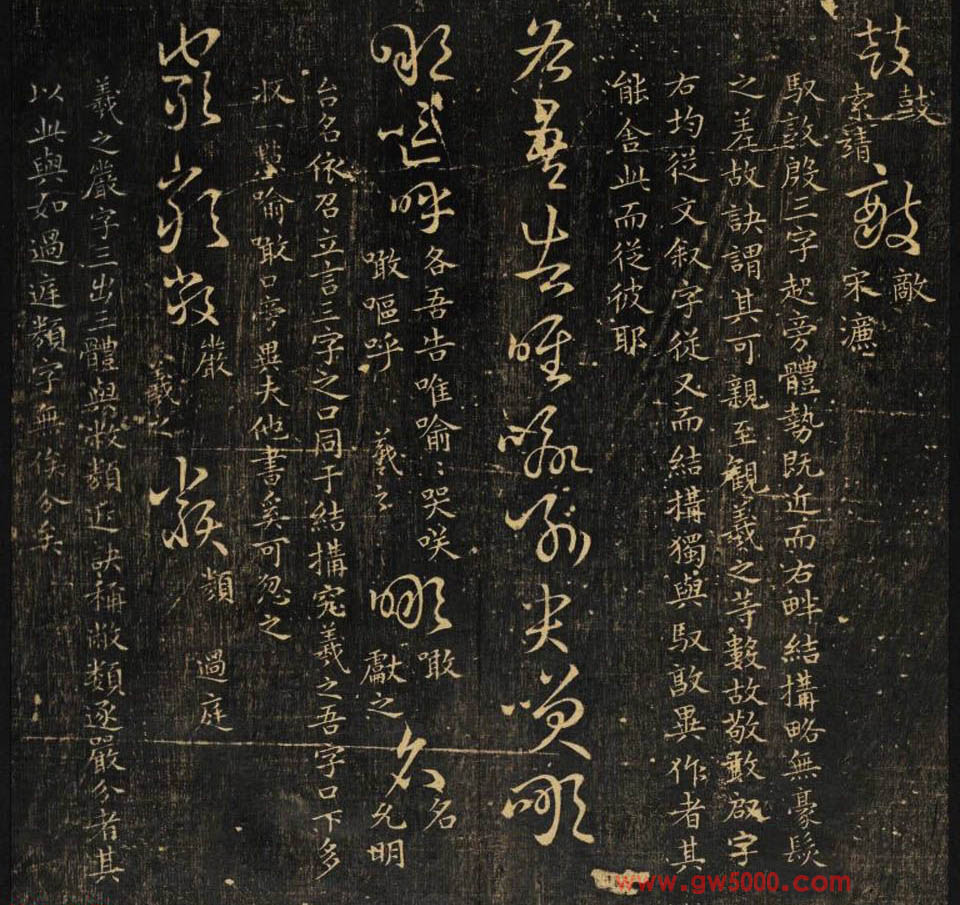 鼓 鼓
索靖 敵 敵
宋濂
馭敔殷三字起旁體勢既近而右畔結搆略無豪髮
之差故訣謂其可親至觀羲之等數故敬敢啟字
右均從文叙字從又而結搆獨與馭敔異作者其
能舍此而從彼耶
各吾告唯喻喻哭咲噉
各吾告唯喻：哭咲 噉 名
噉嘔呼 羲之 獻之 允明
台名依召立言三字之口同于結搆究羲之吾字口下多
收一 喻噉口旁異夫他書奚可忽之
嚴 嚴 嚴 嚴 類 類 過庭
羲之
羲之嚴字三出三體與 類近訣稱敝類逐嚴分者其
以此與如過庭類字無俟分矣
www.gw5000.com